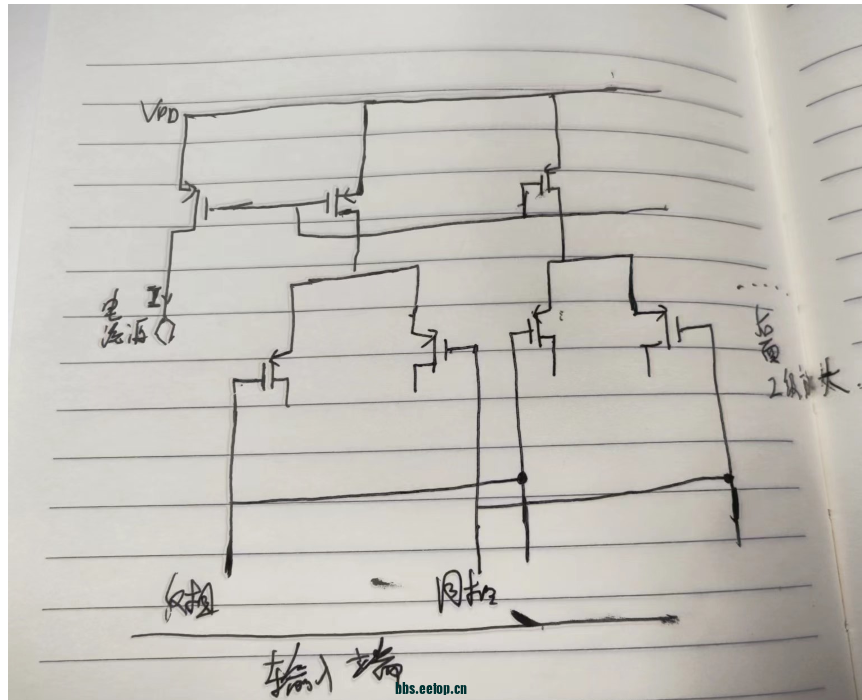 VDD
I
电
流源
后面
2级放大
反相
同相
输入端
bbs.eetop.cn